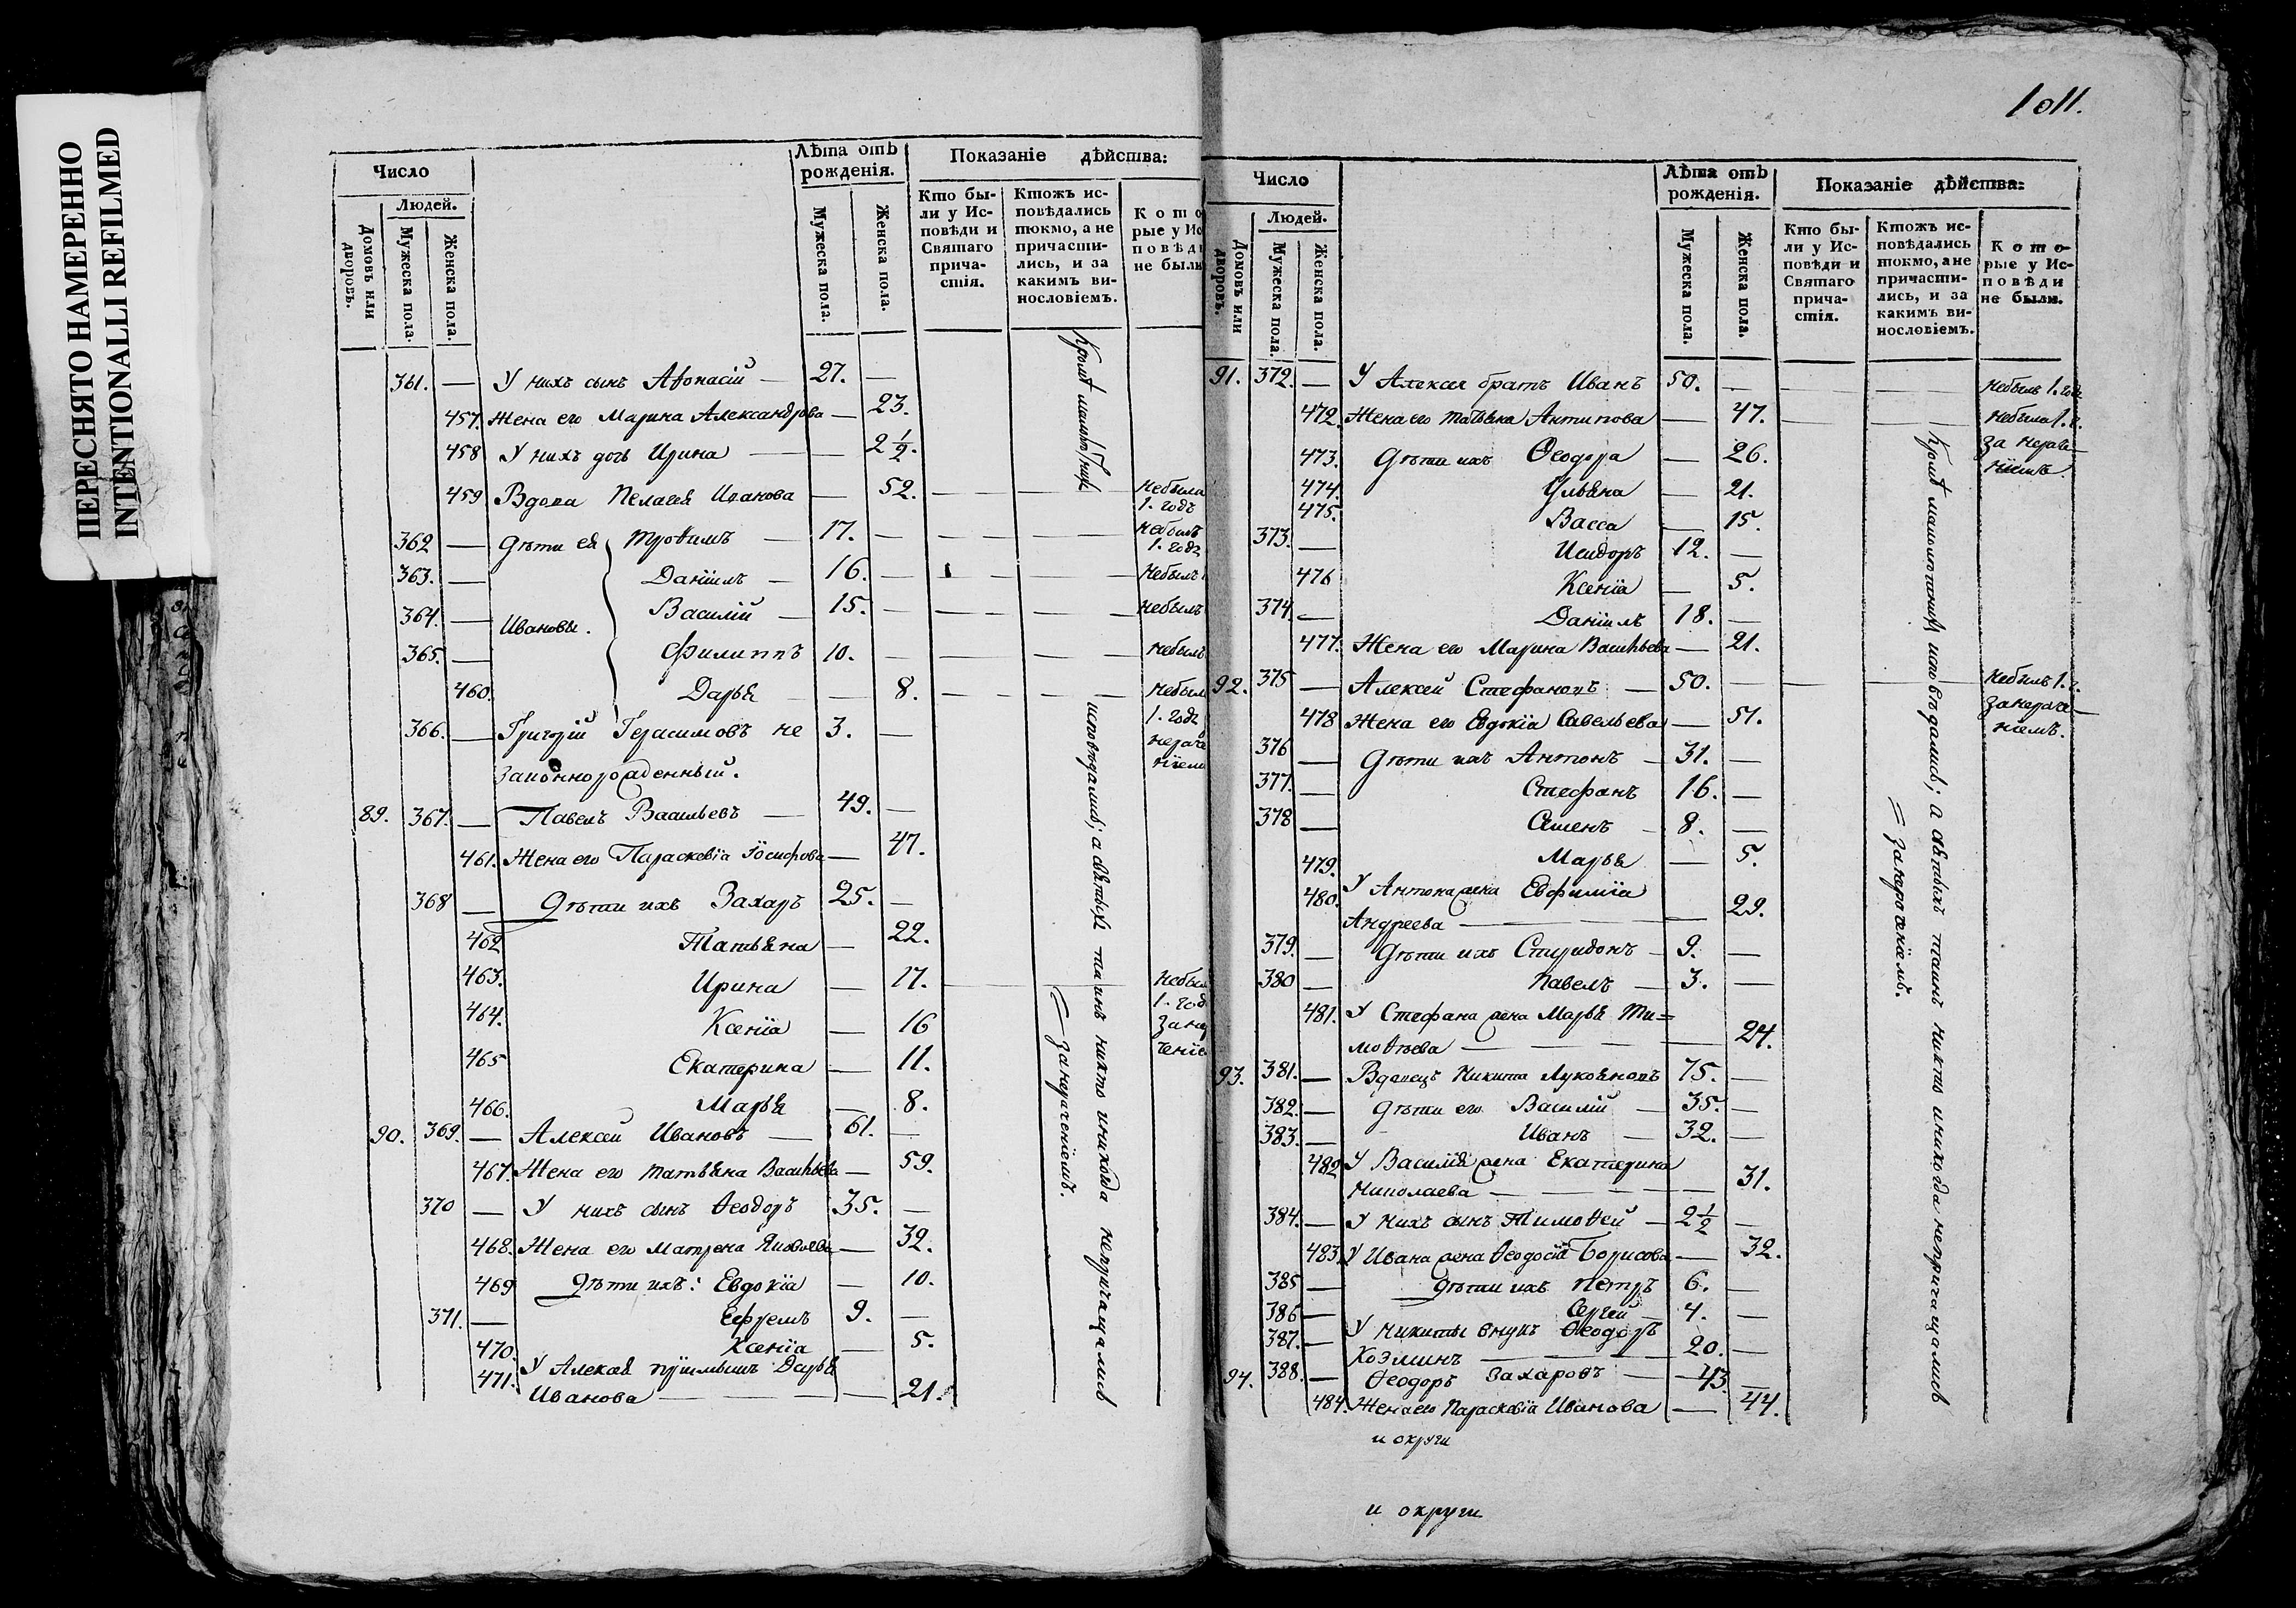 ПЕРЕСНЯТО НАМЕРЕННО
INTENTIONALLI REFILMED
1011.
Число
Людей.
Домовъ или дворовъ.
Мужеска пола.
Женска пола.
Лѣта отъ рожденія.
Мужеска пола.
Женска пола.
Показаніе дѣйства:
Кто бы-
ли у Ис-
повѣди и
Святаго
прича-
стія.
Ктожъ ис-
повѣдались
токмо, а не
причасти-
лись, и за
какимъ ви-
нословіемъ.
Кото
рые у Ис
повѣд
не были
361. — У нихъ сынъ Аѳонасій — 27. —
457. Жена его Марина Александрова — 23.
458 У нихъ дочь Ирина — — 2 1/2.
459 Вдова Пелагея Иванова — 52. — — — небыла
1. годъ
362 — Дѣти ея Трофимъ — 17. — — — — небылъ
1. годъ
363. — Даніилъ — 16. — — — — небылъ
364. — Ивановы. Василій — 15. — — — — небылъ
365. — Филиппъ 10. — — — — небылъ
460. Дарья — — 8. — — — небыл
366. — Григорій Герасимовъ не 3. — 1. годъ
законнорожденный. нераче
ніем
89. 367. — Павелъ Васильевъ — 49. —
461. Жена его Параскевіа Іосифова — 47.
368 — Дѣти ихъ Захаръ 25. —
462 Татьяна — 22.
463. Ирина — 17. — — небыл
1. год
464. Ксеніа — 16 за нер
465 Екатерина — 11. ченіе
466. Марья — 8.
90. 369. — Алексѣй Ивановъ — 61. —
467. Жена его Татьяна Васильева — 59.
370 — У нихъ сынъ Ѳеодоръ 35. —
468. Жена его Матрена Яковлева — 32.
469 Дѣти ихъ: Евдокіа — 10.
371. — Ефремъ 9. —
470. Ксеніа — 5.
471. У Алексѣя пріимышъ Дарья
Иванова — — — — 21.
Кромѣ малолѣтнихъ исповѣдались; а святыхъ таинъ никто никогда непричащались
= занераченіемъ.
Число
Людей.
Домовъ или дворовъ.
Мужеска пола.
Женска пола.
Лѣта отъ рожденія.
Мужеска пола.
Женска пола.
Показаніе дѣйства:
Кто бы-
ли у Ис-
повѣди и
Святаго
прича-
стія.
Ктожъ ис-
повѣдались
токмо, а не
причасти-
лись, и за
какимъ ви-
нословіемъ.
Кото-
рые у Ис-
повѣди
не были.
91. 372. — У Алексея братъ Иванъ 50. — — — небылъ 1. годъ
472. Жена его Татьяна Антипова — 47. — — небыла 1. г.
473. Дѣти ихъ Ѳеодора — 26. за нераче
474. Ульяна — 21. ніемъ.
475. Васса — 15.
373. — Исидоръ 12. —
476 Ксеніа — 5.
374. — Даніилъ 18. —
477. Жена его Марина Васильева — 21.
92. 375 — Алексѣй Стефановъ — 50. — — — небылъ 1. г.
478 Жена его Евдокіа Савельева — 51. занераче
376 — Дѣти ихъ Антонъ — 31. — ніемъ.
377. — Стефанъ 16. —
378 — Семенъ — 8. —
479. Марья — 5.
480. У Антона жена Евфиміа
Андреева — — — 29.
379. — Дѣти ихъ Спиридонъ — 9. —
380 — Павелъ — 3. —
481. У Стефана жена Марья Ти=
моѳеева — — — — 24.
93. 381. — Вдовецъ Никита Лукьяновъ 75. —
382. — Дѣти его Василій — 35. —
383. — Иванъ — 32. —
482 У Василія жена Екатерина
Николаева — — — — 31.
384. — У нихъ сынъ Тимоѳей — 2 1/2 —
483. У Ивана жена Ѳеодосіа Борисова — 32.
385 — Дѣти ихъ Петръ 6. —
386 — Сергей — 4. —
387. — У Никиты внукъ Ѳеодоръ
Козминъ — 20. —
94. 388. — Ѳеодоръ Захаровъ — 43. —
484. Жена его Параскевіа Иванова — 44.
Кромѣ малолѣтнихъ исповѣдались; а святыхъ таинъ никто никогда непричащались
= занероченіемъ.
и округи
и округи